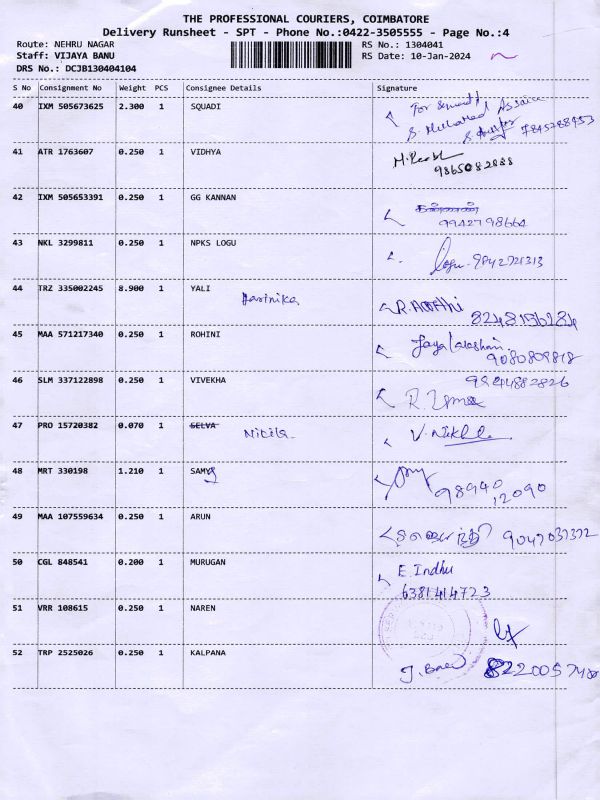 THE PROFESSIONAL COURIERS, COIMBATORE
Delivery Runsheet - SPT - Phone No.:0422-3505555 - Page No.:4
Route: NEHRU NAGAR RS No.: 1304041
Staff: VIJAYA BANU RS Date: 10-Jan-2024
DRS No.: DCJB130404104
S No Consignment No Weight PCS Consignee Details Signature
40 IXM 505673625 2.300 1 SQUADI For
S. Mohamed
7845288953
41 ATR 1763607 0.250 1 VIDHYA
9865082888
42 IXM 505653391 0.250 1 GG KANNAN
9942798664
43 NKL 3299811 0.250 1 NPKS LOGU Logu. 9842721313
44 TRZ 335002245 8.900 1 YALI
Harinika R. Aarthi
8248156284
45 MAA 571217340 0.250 1 ROHINI
9080809818
46 SLM 337122898 0.250 1 VIVEKHA
R. Uma
47 PRO 15720382 0.070 1 SELVA
Nikila. V. Nikhila
48 MRT 330198 1.210 1 SAMY
98940
12090
49 MAA 107559634 0.250 1 ARUN 9047037372
50 CGL 848541 0.200 1 MURUGAN E. Indhu
6381414723
51 VRR 108615 0.250 1 NAREN
52 TRP 2525026 0.250 1 KALPANA